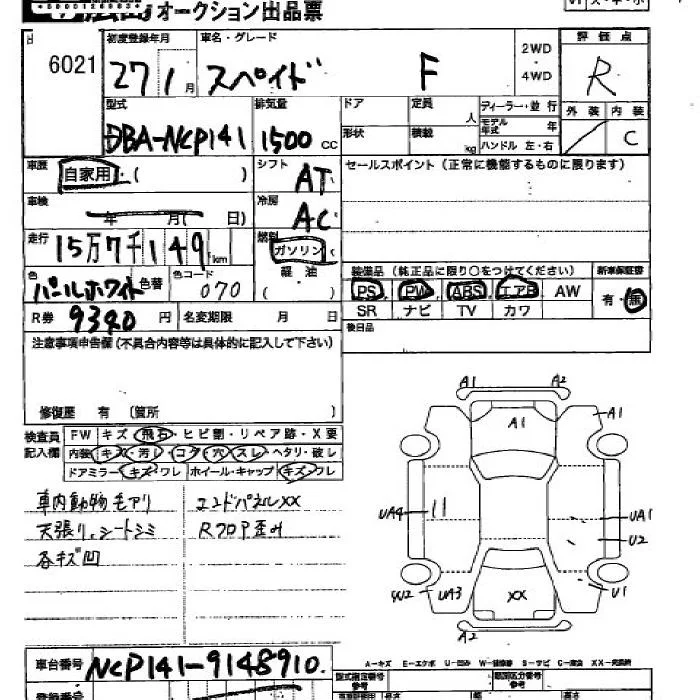 オークション出品票
6021
初度登録年月
27 1月
車名・グレード
スペイド F
2WD
・
4WD
評価点
R
外装 内装
C
型式
DBA-NCP141
排気量
1500 cc
ドア
定員
人
形状
積載
kg
ディーラー・並行
モデル年式
年
ハンドル 左・右
車歴
自家用・( )
シフト
AT
セールスポイント (正常に機能するものに限ります)
車検
年 月( 日)
冷房
AC
走行
15万7千149km
燃別
ガソリン
軽油
( )
色
パールホワイト
色替
色コード
070
装備品 (純正品に限り○をつけてください)
新車保証書
PS PW ABS エアB AW
SR ナビ TV カワ
有・無
R券 9340 円
名変期限 月 日
後日品
注意事項申告欄(不具合内容等は具体的に記入して下さい)
修復歴 有 (箇所
検査員記入欄
FW キズ・飛石・ヒビ割・リペア跡・X要
内装 キズ・汚レ・コゲ・穴・スレ・ヘタリ・破レ
ドアミラー キズ・ワレ ホイール・キャップ キズ・ワレ
車内動物毛アリ
エンドパネルXX
天張り、シートシミ
RフロP歪み
各キズ凹
A1 A2
A1 A1
UA4
UA1
U2
UA3
XX
U1
A2
車台番号 NCP141-9148910
A-キズ E-エクボ U-凹み W-補修巻 S-サビ C-腐蝕 XX-交換済
型式指定番号
参考
類別区分番号
参考
登録番号
長さ